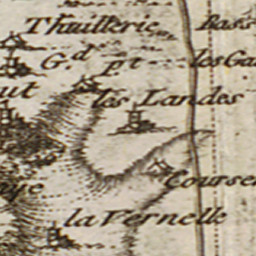 Thuillerie Bass
G.d P.t les Ga
ut les Landes
ye Course
la Vernelle